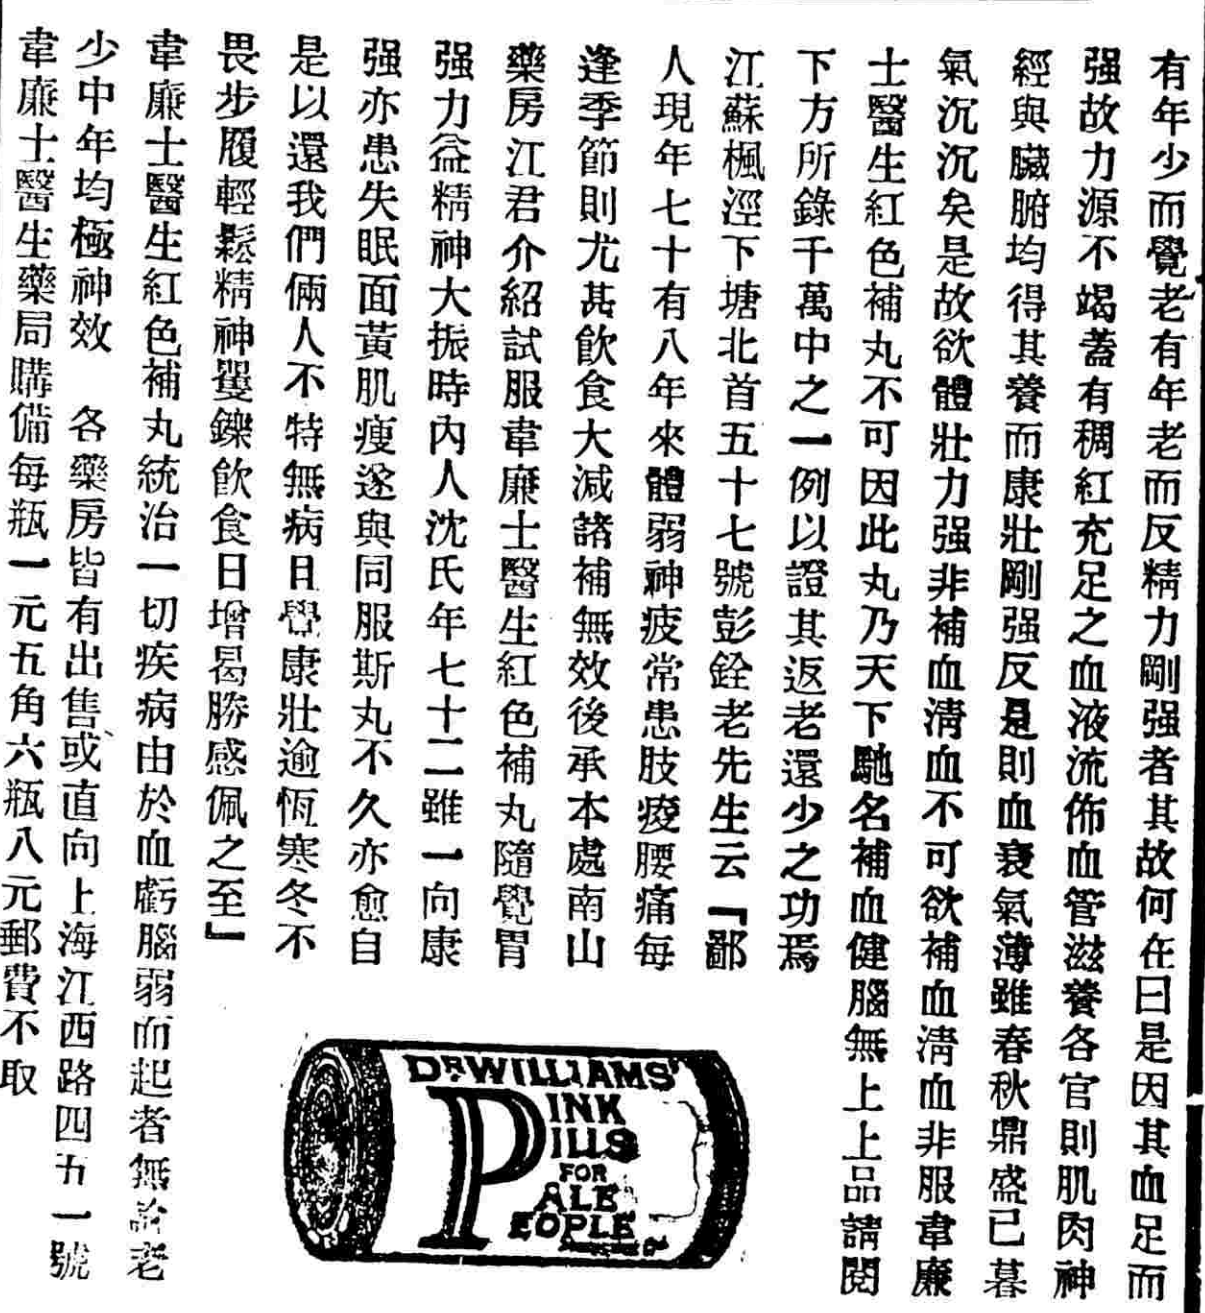 有年少而覺老有年老而反精力剛强者其故何在曰是因其血足而
强故力源不竭蓋有稠紅充足之血液流佈血管滋養各官則肌肉神
經與臟腑均得其養而康壯剛强反是則血衰氣薄雖春秋鼎盛已暮
氣沉沉矣是故欲體壯力强非補血淸血不可欲補血淸血非服韋廉
士醫生紅色補丸不可因此丸乃天下馳名補血健腦無上上品請閱
下方所錄千萬中之一例以證其返老還少之功焉
江蘇楓涇下塘北首五十七號彭銓老先生云『鄙
人現年七十有八年來體弱神疲常患肢痠腰痛每
逢季節則尤甚飮食大減諸補無效後承本處南山
藥房江君介紹試服韋廉士醫生紅色補丸隨覺胃
强力益精神大振時內人沈氏年七十二雖一向康
强亦患失眠面黃肌瘦遂與同服斯丸不久亦愈自
是以還我們倆人不特無病且覺康壯逾恆寒冬不
畏步履輕鬆精神矍鑠飮食日增曷勝感佩之至』
韋廉士醫生紅色補丸統治一切疾病由於血虧腦弱而起者無論老
少中年均極神效　各藥房皆有出售或直向上海江西路四五一號
韋廉士醫生藥局購備每瓶一元五角六瓶八元郵費不取
DR WILLIAMS'
PINK
PILLS
FOR
PALE
PEOPLE